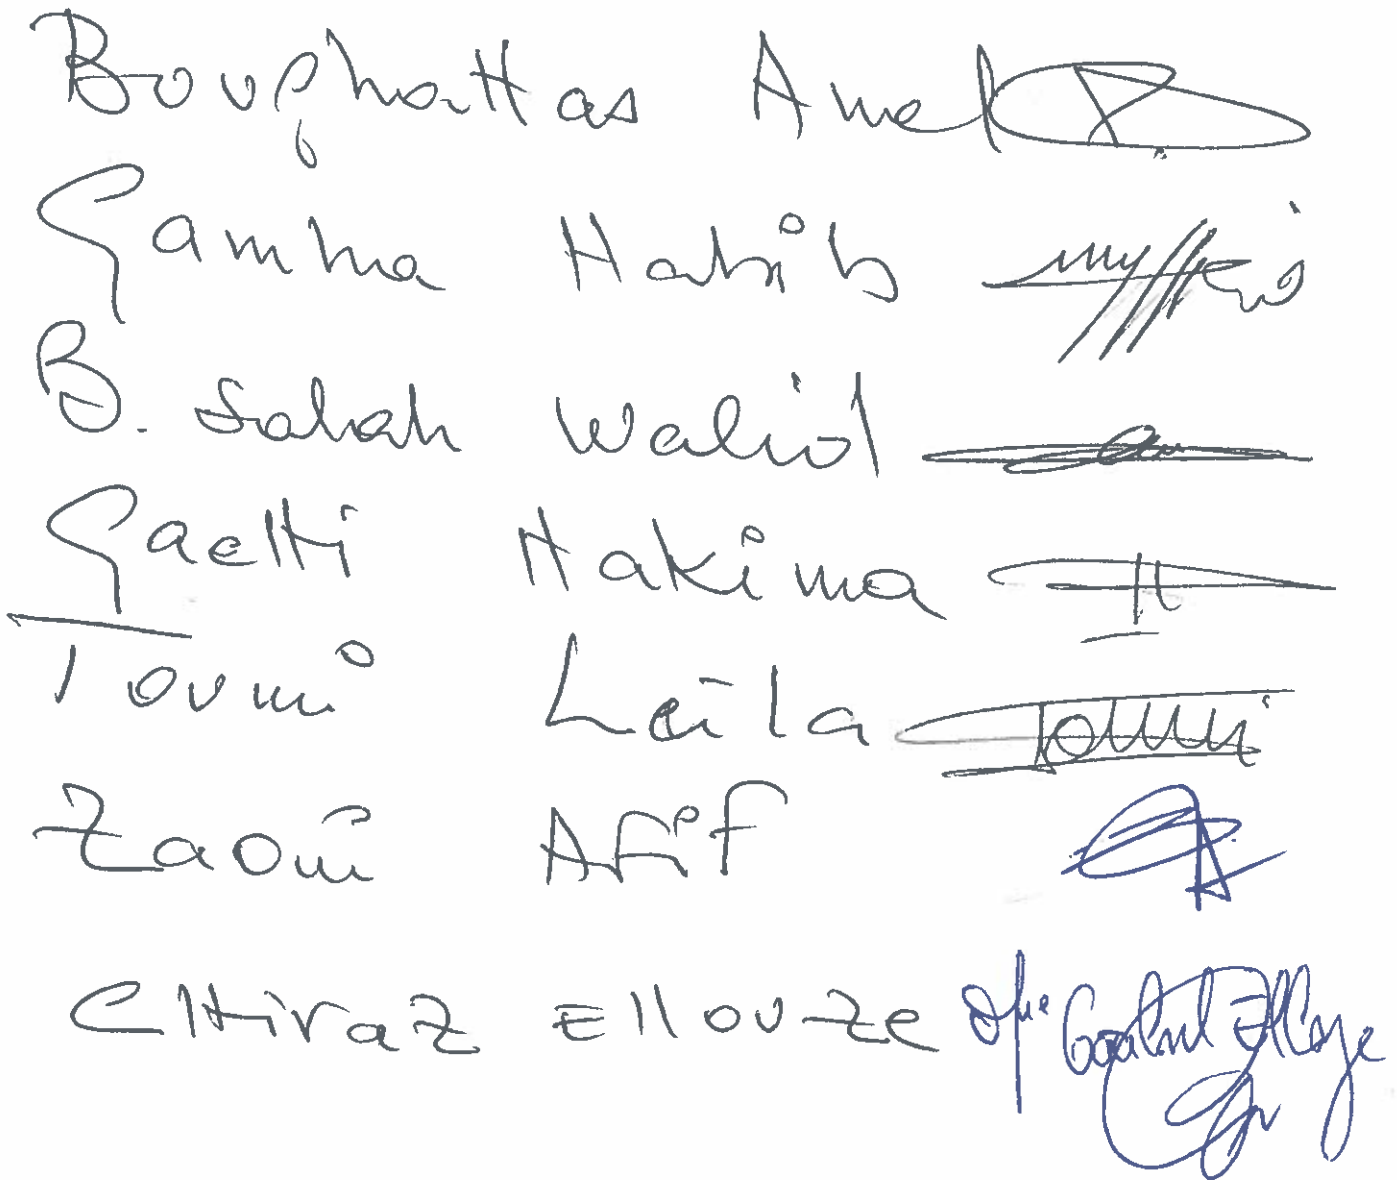 Boughattas Amel
Gamha Habib
B. Salah Walid
Gaelti Hakima
Toumi Leïla Toumi
Zaoui Afif
CHiraz Ellouze